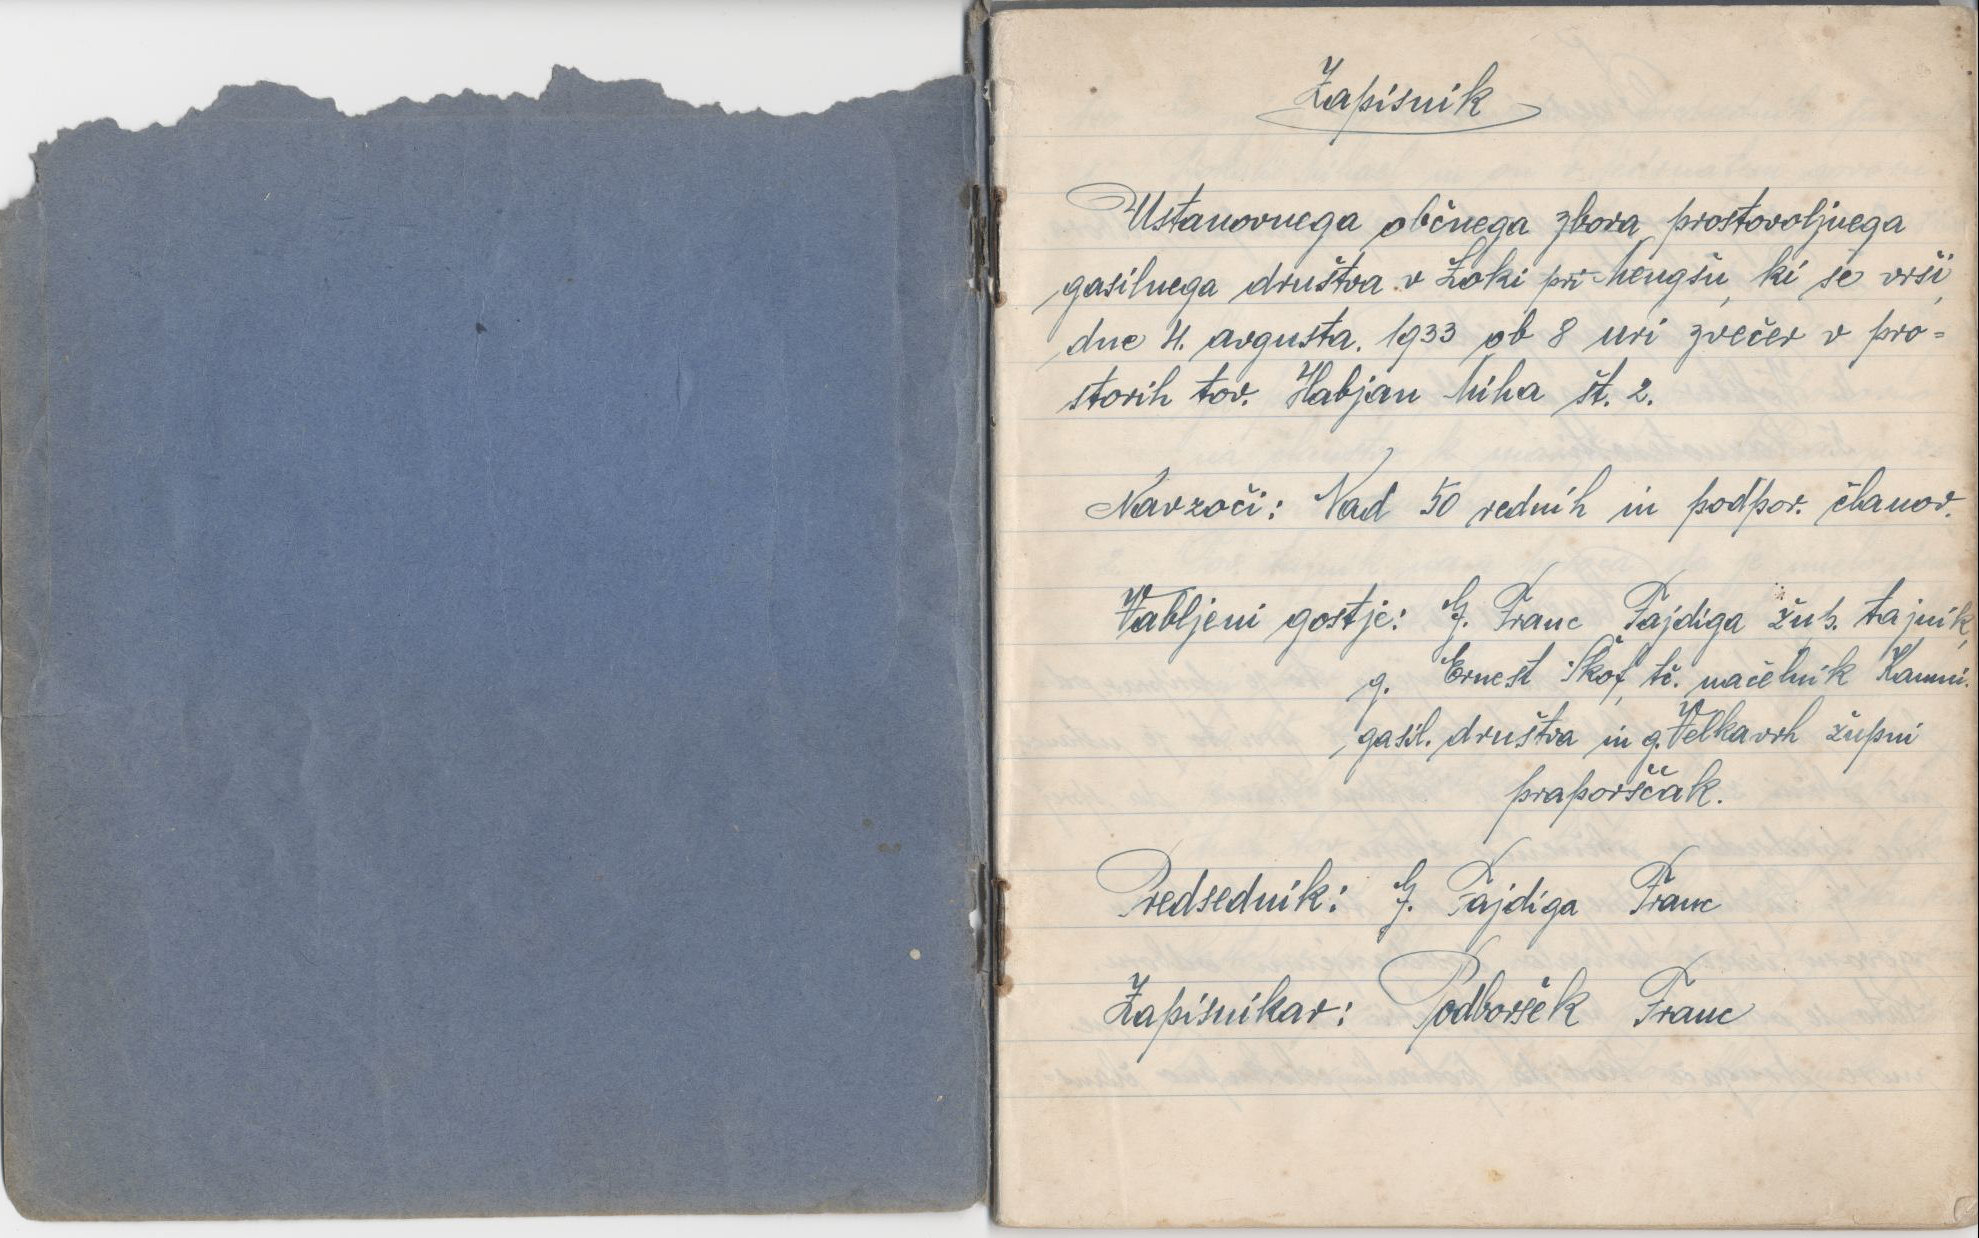 Zapisnik
Ustanovnega občnega zbora prostovoljnega
gasilnega društva v Loki pri Mengšu, ki se vrši
dne 4. avgusta. 1933 ob 8 uri zvečer v pro=
storih tov. Habjan Miha št. 2.
Navzoči: Nad 50 rednih in podpor. članov.
Vabljeni gostje: G. Franc Fajdiga žup. tajnik,
g. Ernest Škof, tč. načelnik Kamni.
gasil. društva in g. Velkavrh župni
praporščak.
Predsednik: G. Fajdiga Franc
Zapisnikar: Podboršek Franc